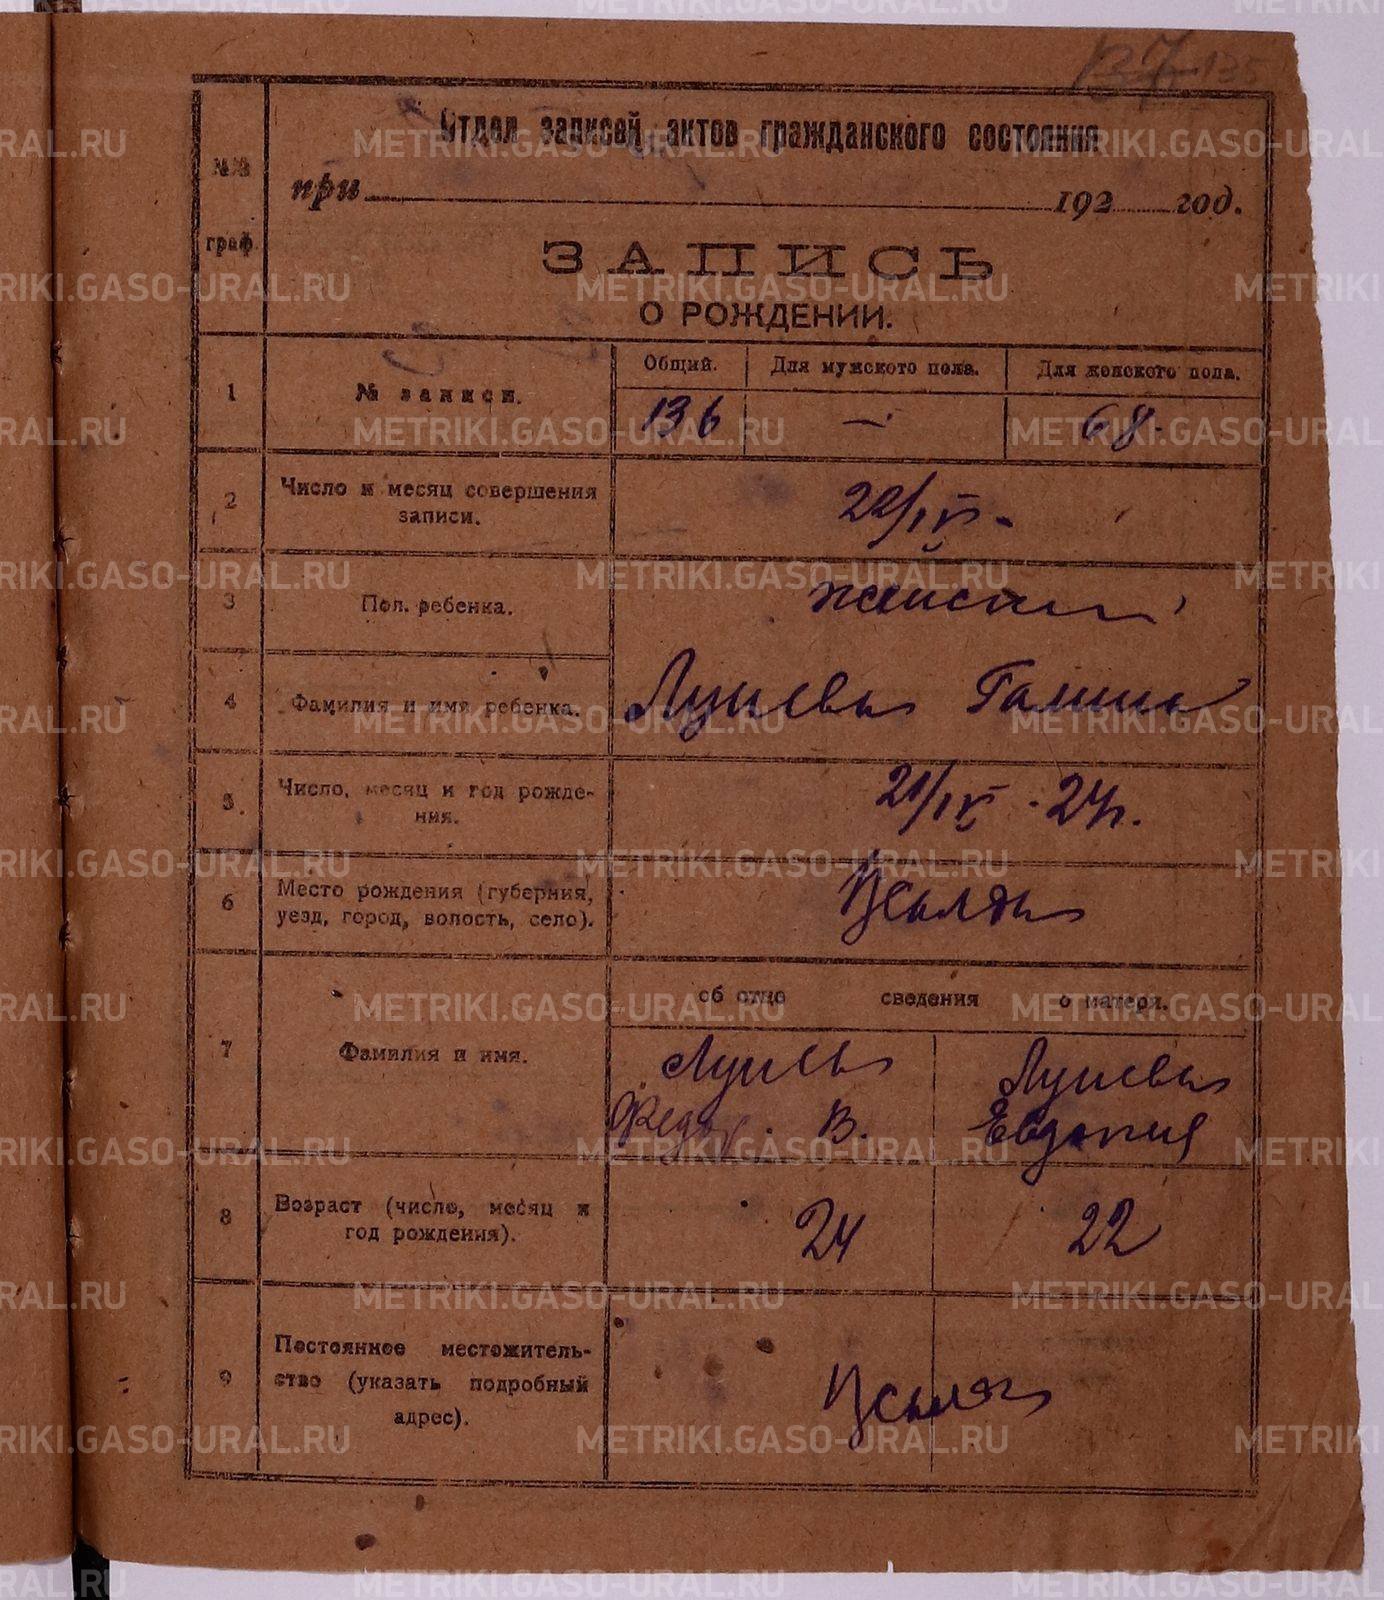 137 135
№№ граф.
Отдел записей актов гражданского состояния
при 192 год.
ЗАПИСЬ
О РОЖДЕНИИ.
1 № записи. Общий. Для мужского пола. Для женского пола.
136 — 68.
2 Число и месяц совершения записи. 22/IX -
3 Пол. ребенка. женский
4 Фамилия и имя ребенка. Галина
5 Число, месяц и год рожде-
ния. 21/IX - 24г.
6 Место рождения (губерния,
уезд, город, волость, село).
об отце сведения о матери.
7 Фамилия и имя.
В. Евдокия
8 Возраст (число, месяц и
год рождения). 24 22
9 Постоянное местожитель-
ство (указать подробный
адрес).
METRIKI.GASO-URAL.RU